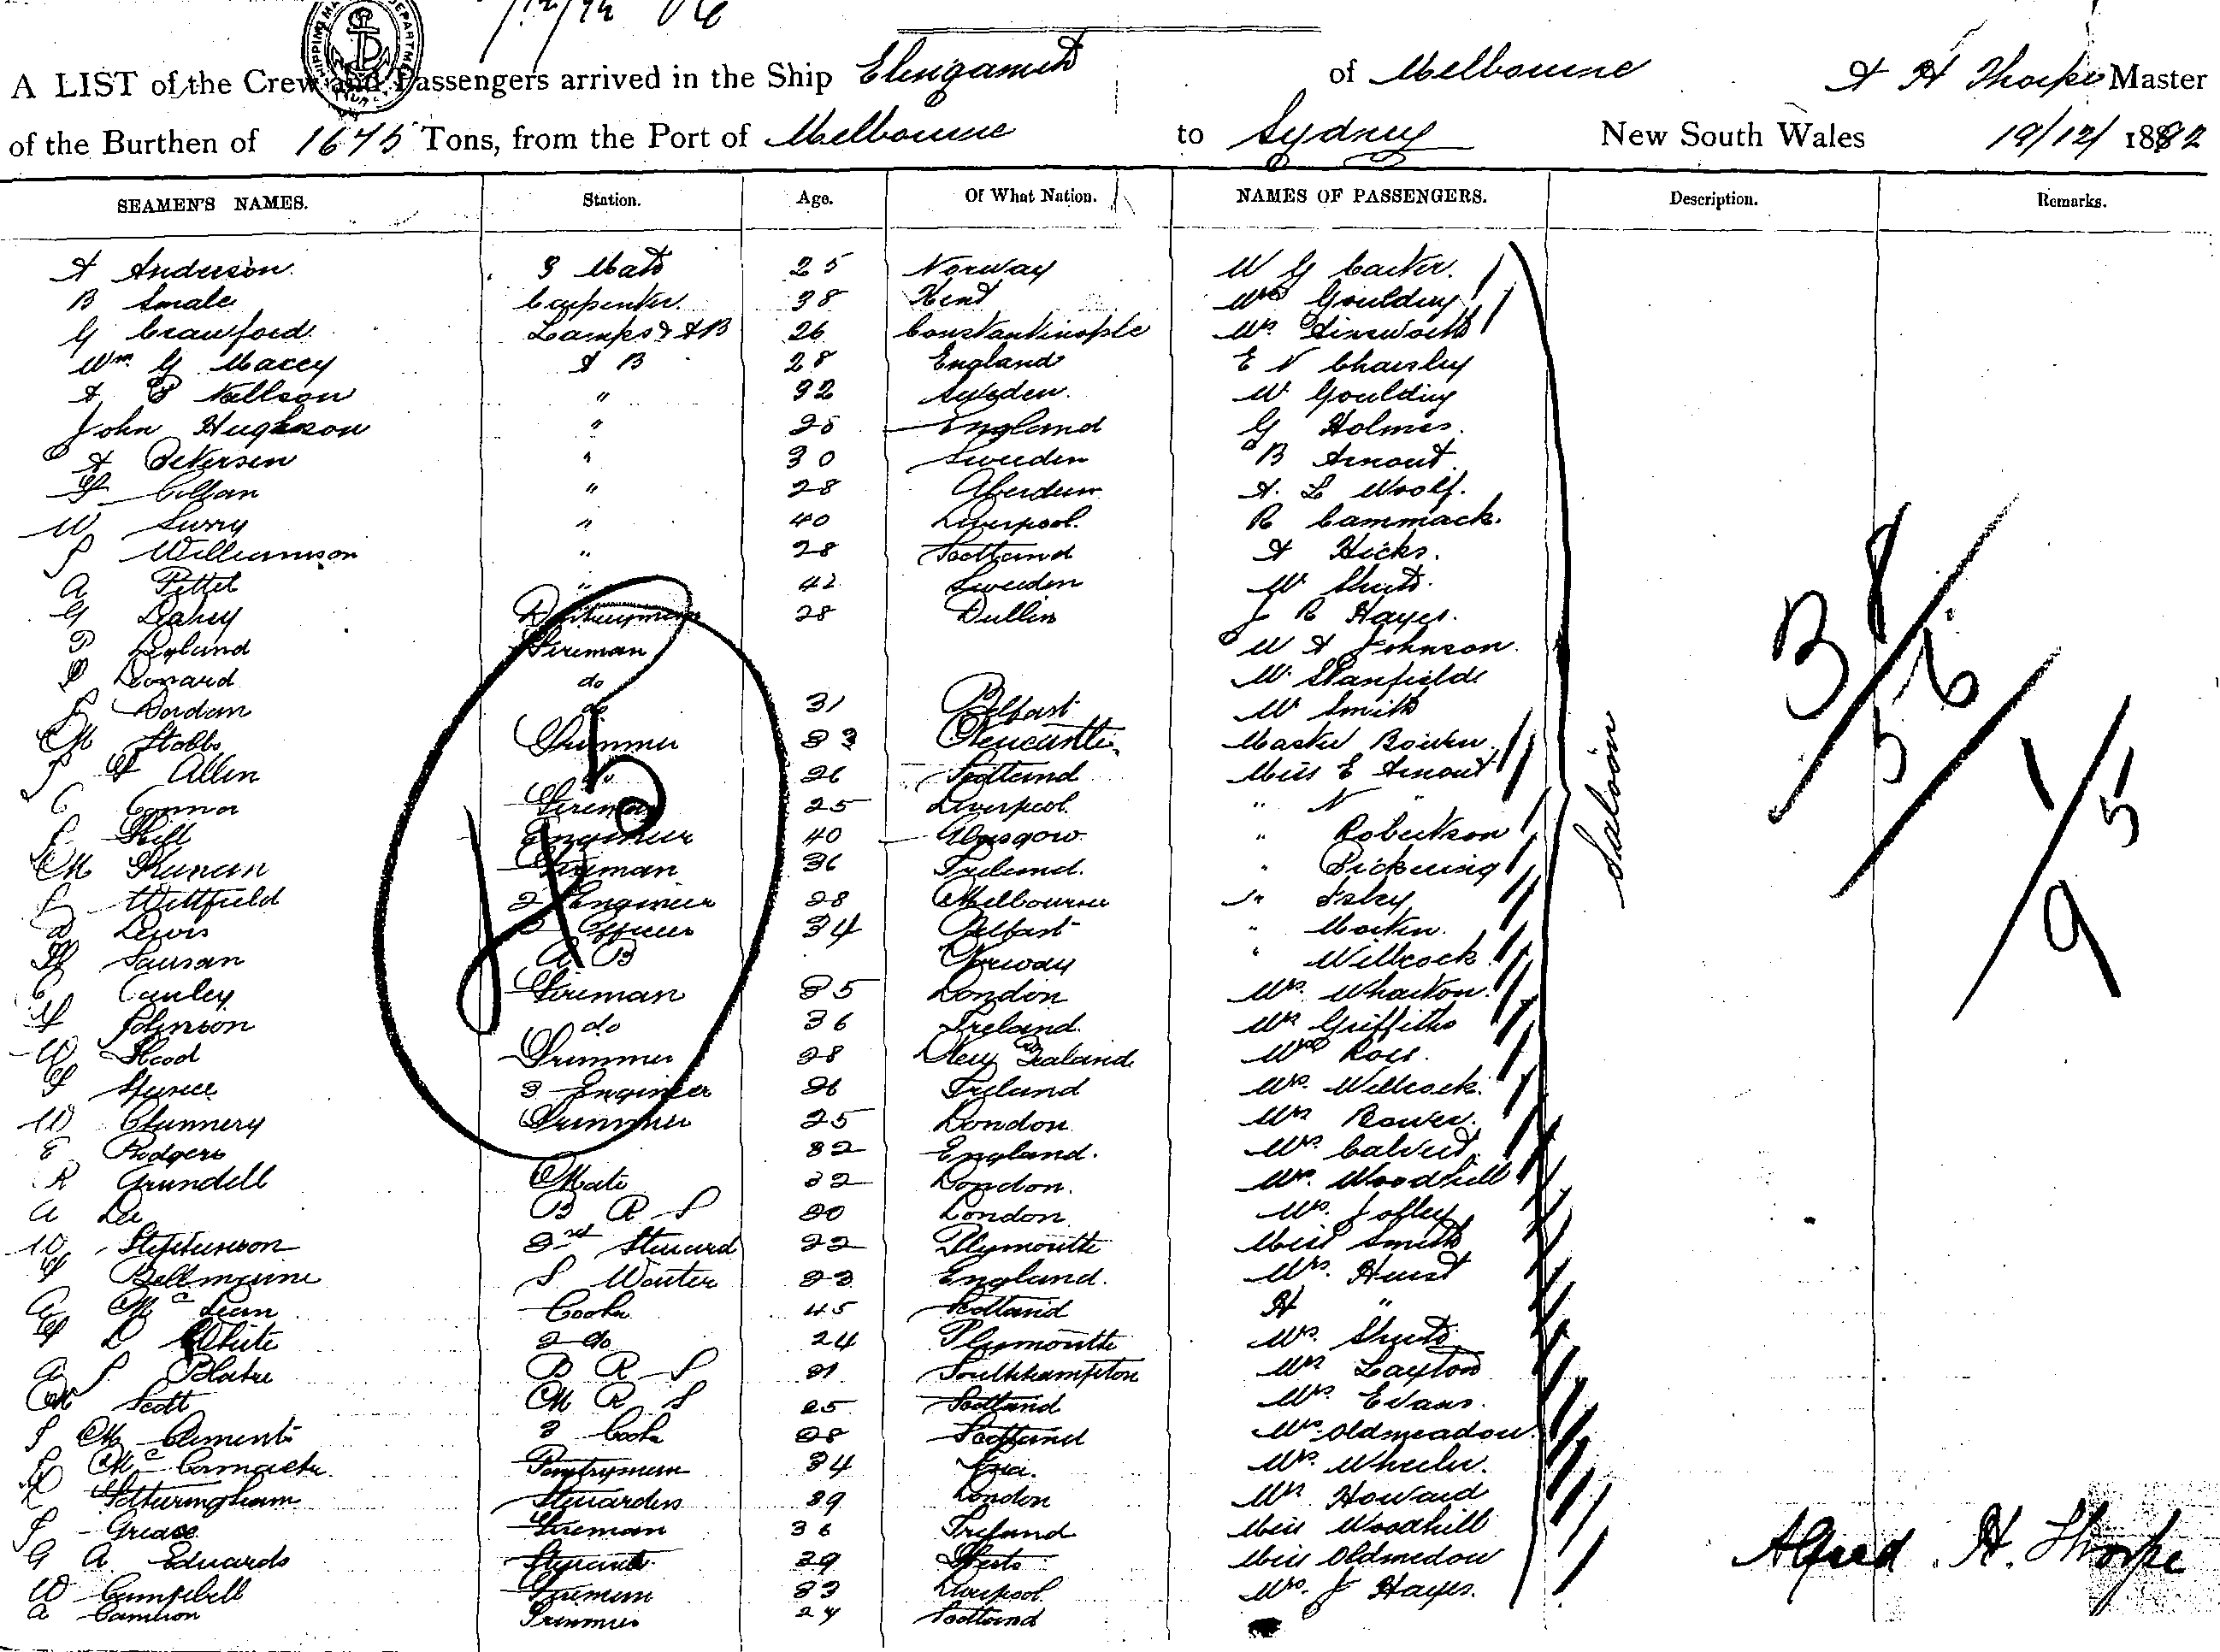 A LIST of the Crew and Passengers arrived in the Ship Elingamite of Melbourne A H Thorpe Master
of the Burthen of 1675 Tons, from the Port of Melbourne to Sydney New South Wales 19/12/ 1892
SEAMEN'S NAMES. Station. Age. Of What Nation. NAMES OF PASSENGERS. Description. Remarks.
A Anderson. 3 Mate 25 Norway W G Carter.
B Smale Carpenter. 38 Kent Goulding
G Crawford Lamps & AB 26 Constantinople Mrs Ainsworth
Wm G Macey A B 28 England E N Charsley
A Neilson " 32 Sweden. W Goulding
John Hughson " 25 England G Holmes.
A Petersen " 30 Sweden B Arnout
" 28 Aberdeen A. L Woolf.
W Surry " 40 Liverpool. R Cammack.
J Williamson " 28 Scotland A Hicks.
A Pettel " 42 Sweden W Shute.
G Dahey Donkeyman 28 Dublin J R Hayes.
Leyland Fireman W A Johnson.
Leonard do W. Stanfield
Jordan do 31 Belfast W Smith
M Stobbs Trimmer 33 Newcastle Master Bowen
J H Allen do 26 Scotland Miss E Arnout
C Connor Fireman 25 Liverpool. " N "
Engineer 40 Glasgow. " Robertson
M Fireman 36 Ireland. " Pickering
Wittfield 2 Engineer 28 Melbourne " Isley
D Lewis 2 Officer 34 Belfast "
A B Norway " Willcock
C Cauley Fireman 35 London Mrs. Wharton.
H Johnson do 36 Ireland. Mrs Griffiths
W Head Trimmer 28 New Zealand Ross.
Spence 3 Engineer 26 Ireland Mrs. Willcock.
W Clunnery Trimmer 25 London. Mrs Bower.
E Rodgers 32 England. Mrs. Calvert.
R Grundell Mate 32 London. Mrs. Woodhill
A Lee B R S 30 London. Mrs. Jolley
W Stephenson 2nd Steward 22 Plymouth Miss Smith
Bellmaine S Waiter 23 England. Mrs. Hurst
A Mc Lean Cook 45 Scotland H "
H L White 2 do 24 Plymouth Mrs. Shute
A J Blake B R S 31 Southhampton Mrs Layton
M Scott M R S 25 Scotland Mrs. Evans.
J M Clements 3 Cook 28 Scotland Mrs. Oldmeadow.
Mc Cormack Pantryman 34 Mrs. Wheeler.
Fotheringham Stewardess 39 London Mrs Howard
J Grease Fireman 36 Ireland Miss Woodhill
G A Edwards 29 Herts Miss Oldmedow
W Campbell Fireman 33 Liverpool Mrs. J Hayes.
A Cameron Trimmer 24 Scotland
Saloon
38
56
1
95
Alfred H. Thorpe